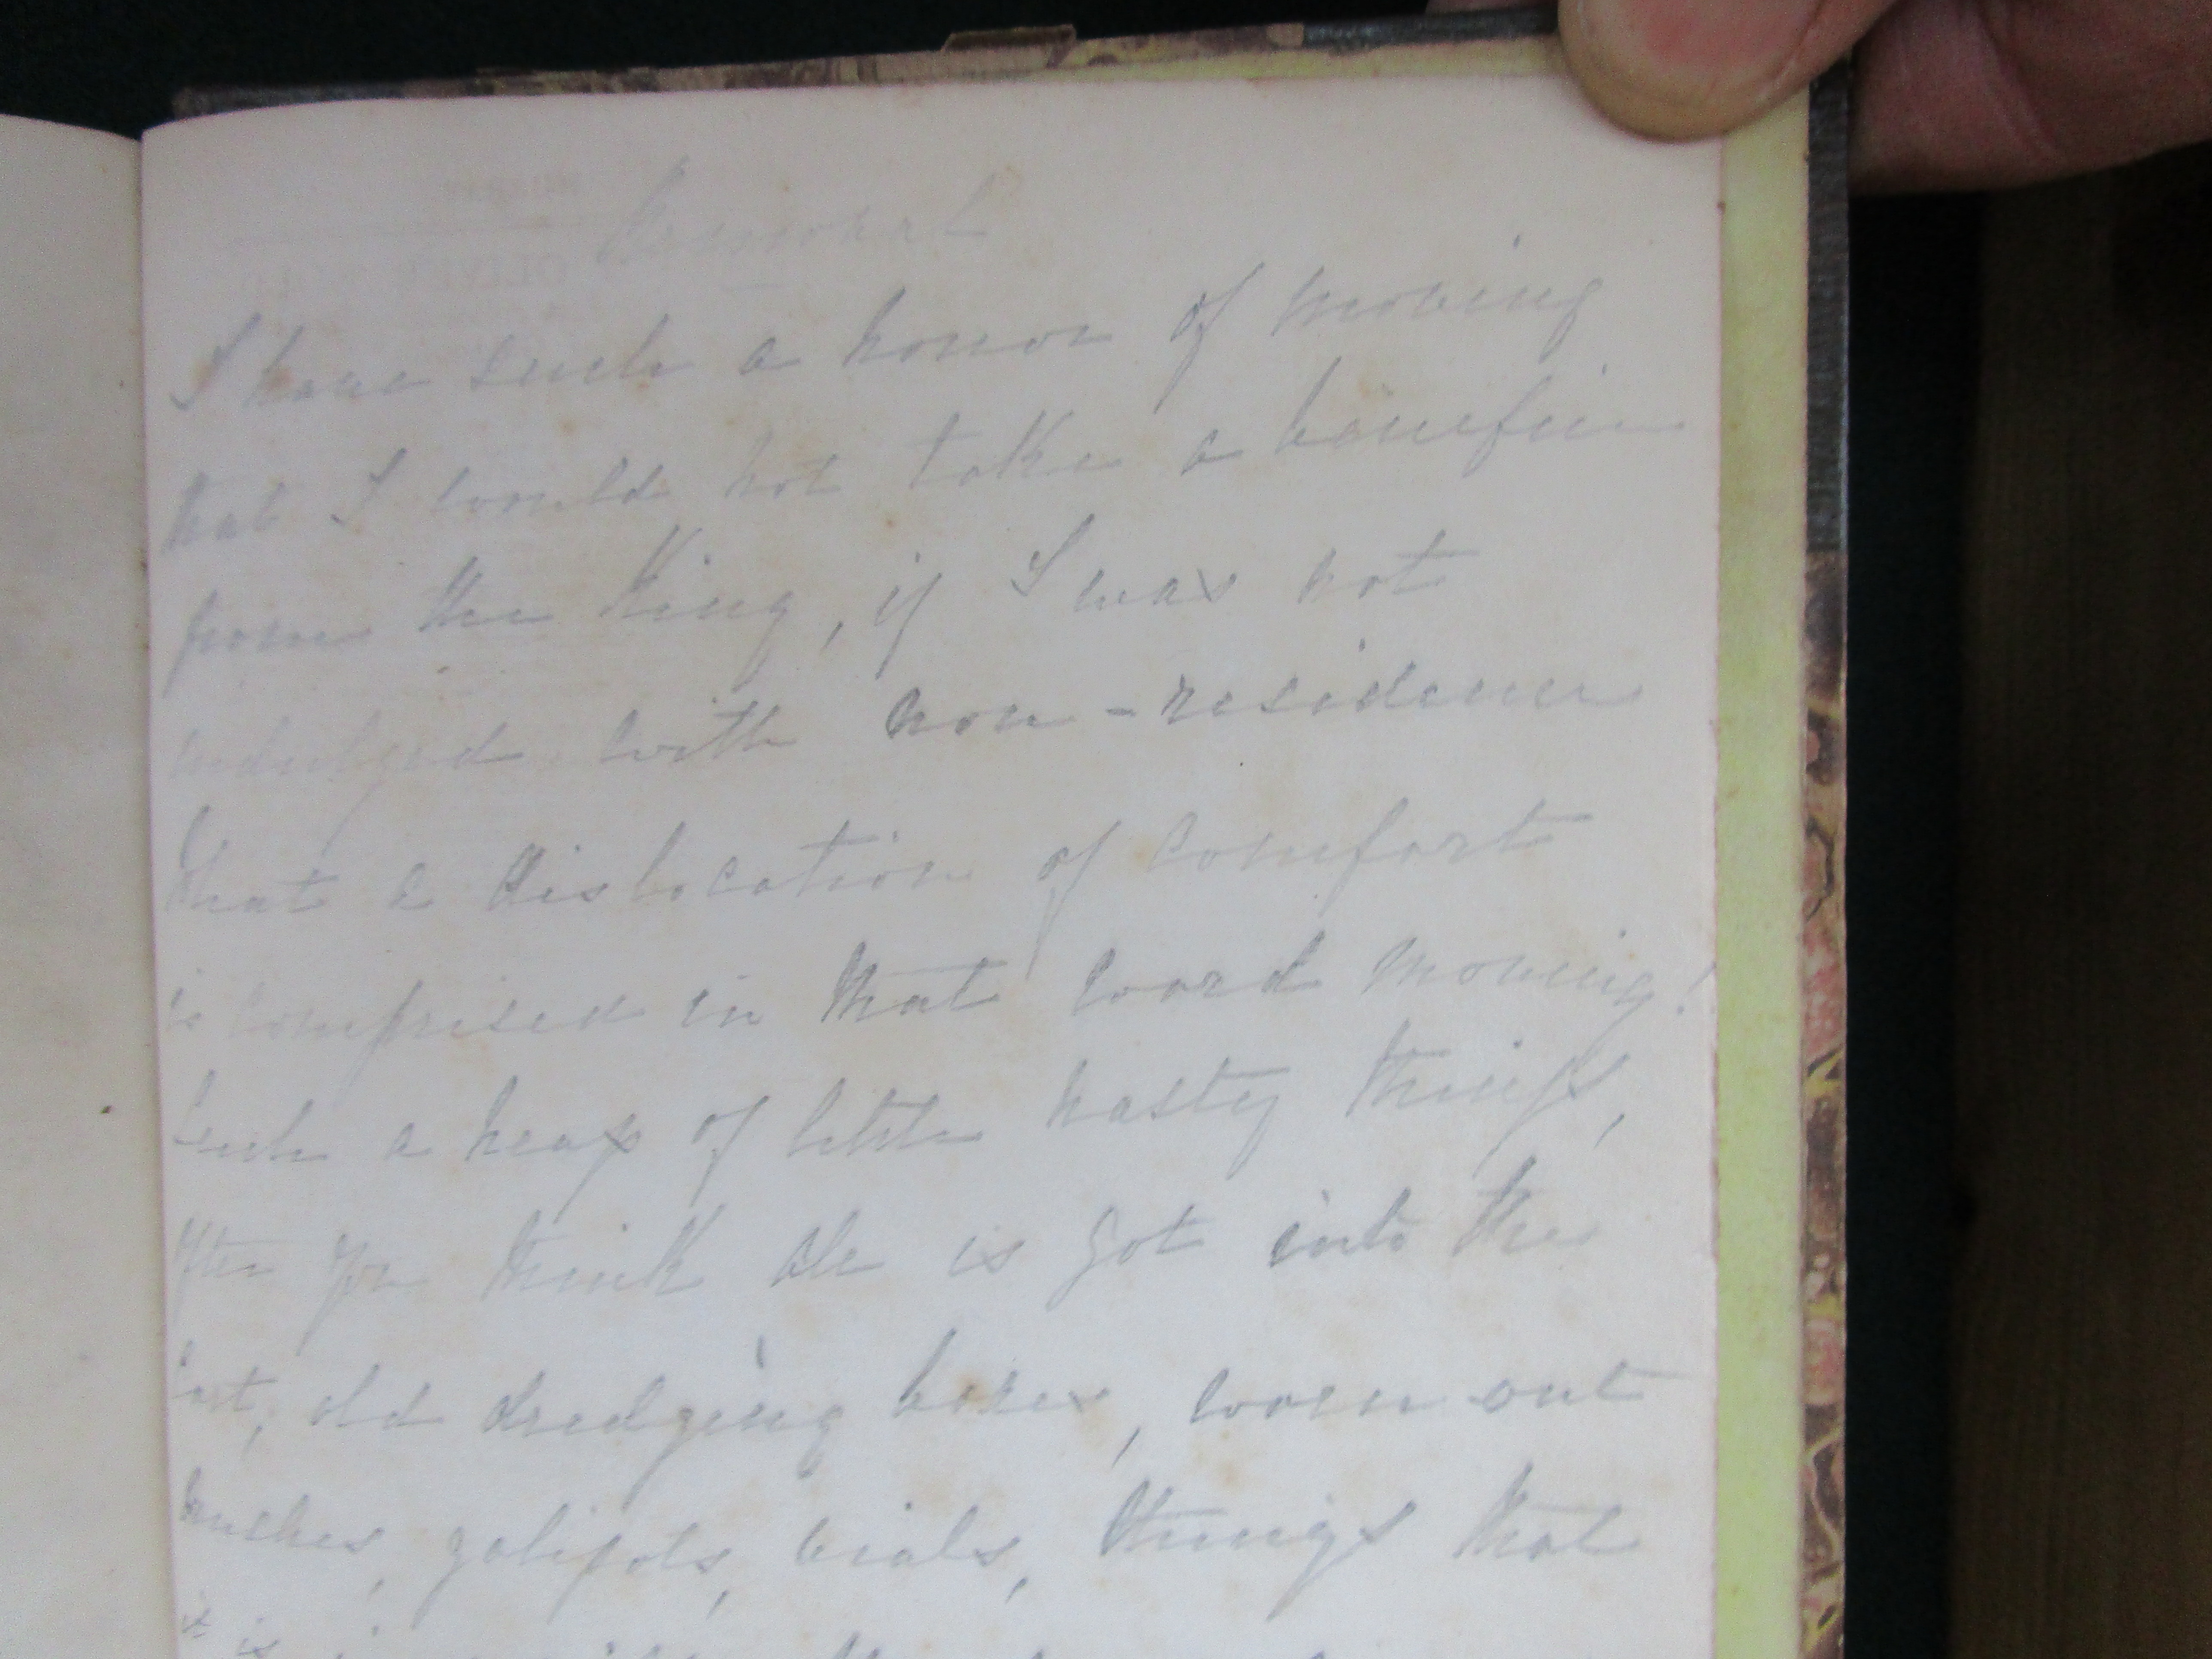 Removal
I have such a horror of moving
that I would not take a benefice
from the King, if I was not
indulged with non-residence
What a dislocation of comfort
is comprised in that word moving!
Such a heap of little nasty things,
after you think all is got into the
cart; old dredging boxes, worn out
brushes, gallipots, vials, things that
it is